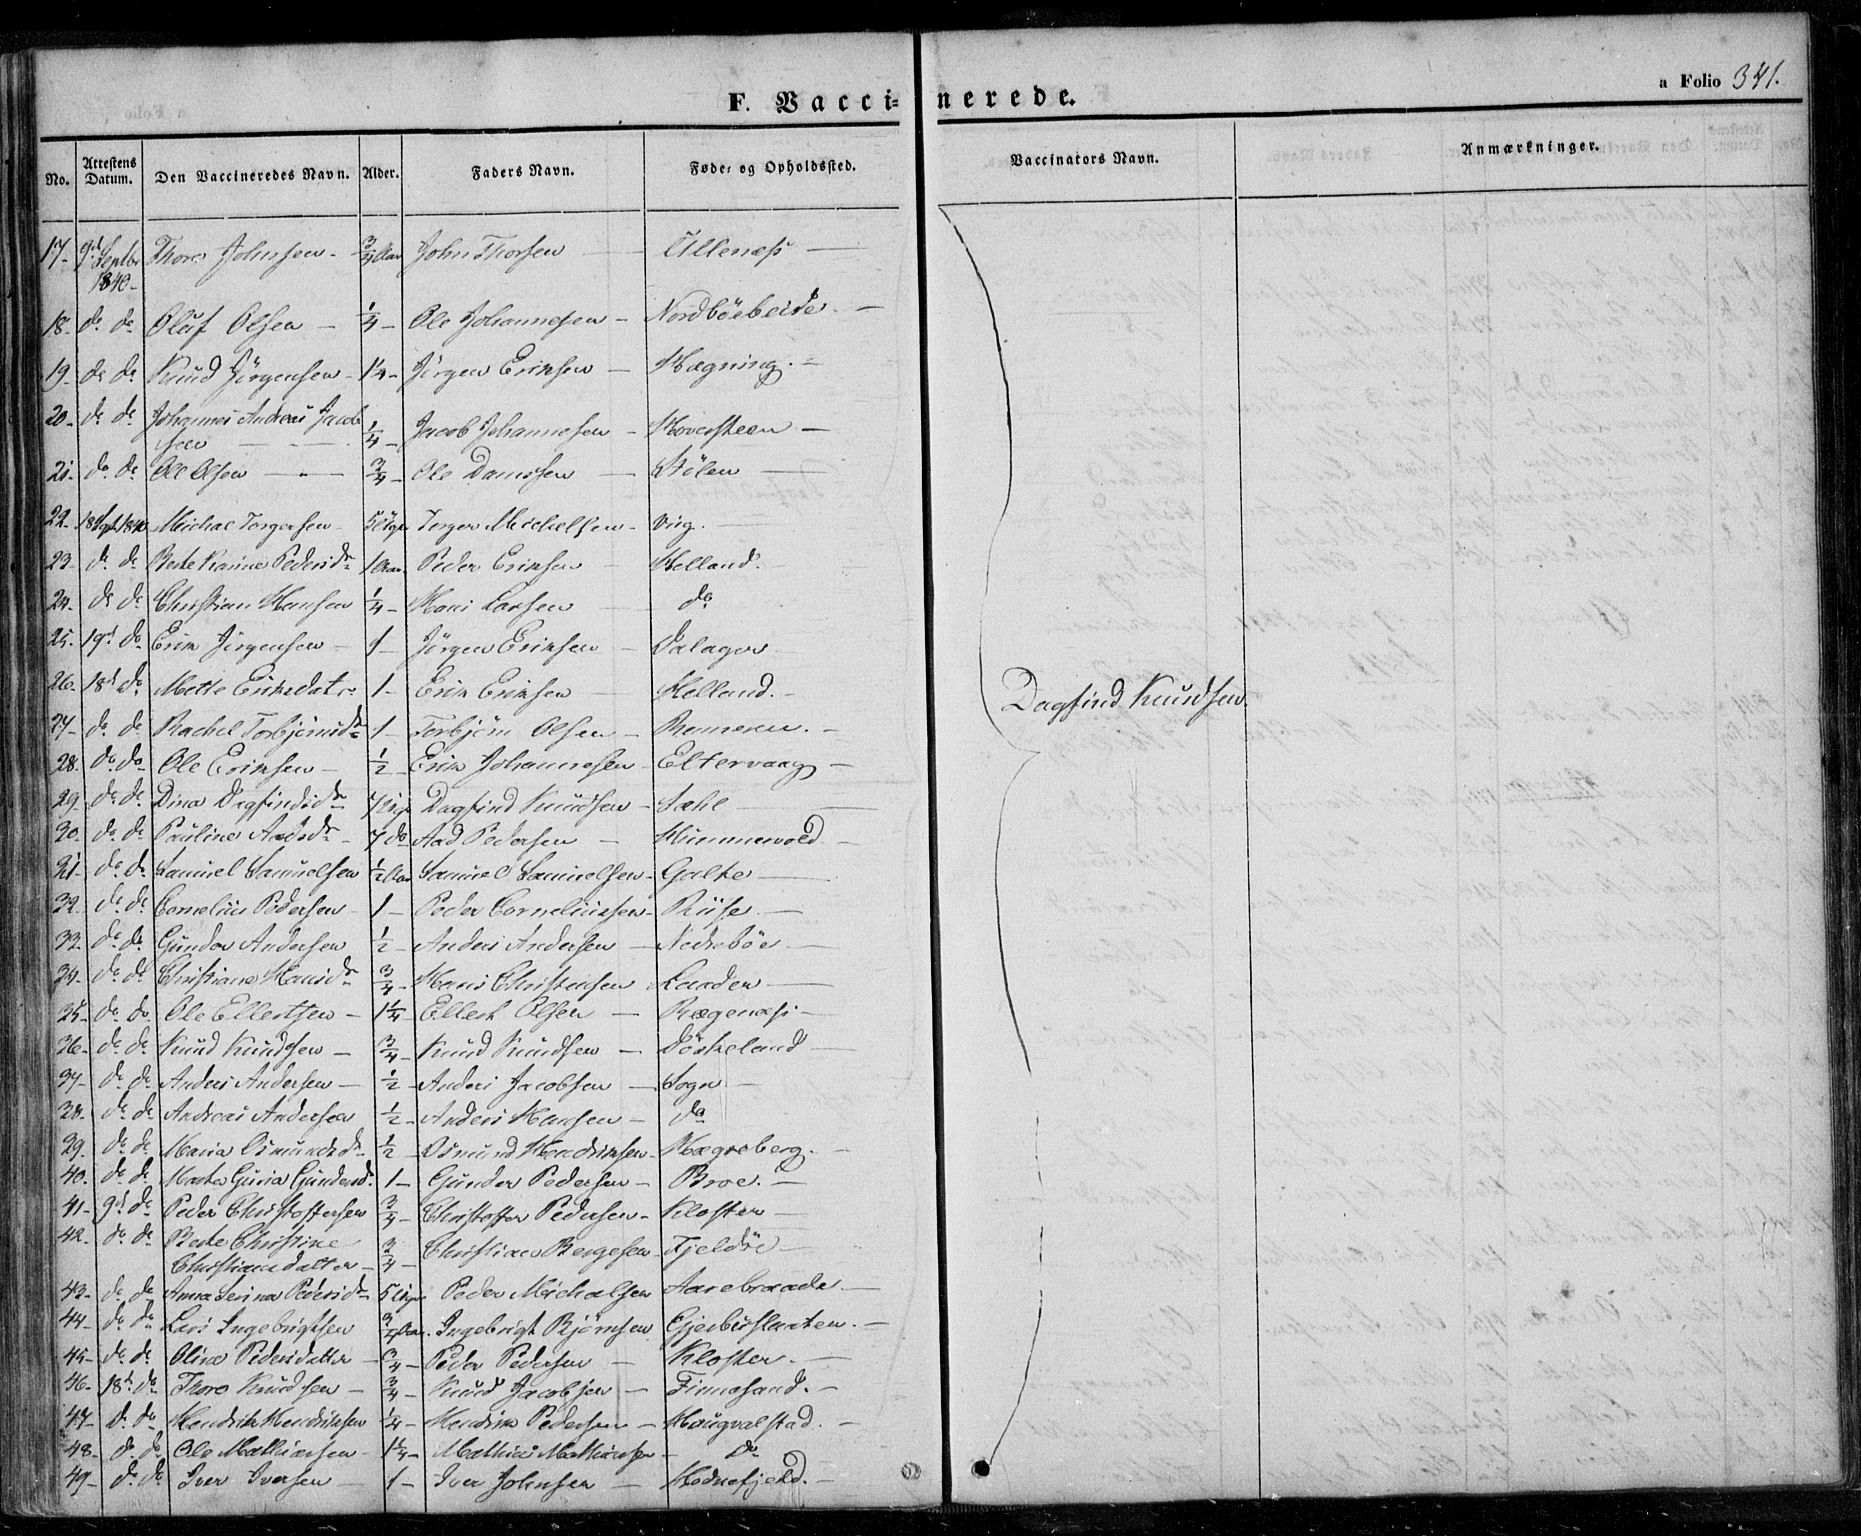 a Folio 341.
F. Vaccinerede.
No. Attestens Datum. Den Vaccineredes Navn. Alder. Faders Navn. Føde- og Opholdssted. Vaccinators Navn. Anmærkninger.
17- 9d Septbr 1840- Thore Johnsen- 3/4 Aar John Thorsen — Ullenæs —
18- do do Oluf Olsen — 1/4 - Ole Johannesen - Nordböebeide —
19- do do Knud Jörgensen - 1 1/4 - Jörgen Eriksen — Hægning. -
20- do do Johannes Andreas Jacob
sen — 1/4 - Jacob Johannesen - Hoversteen —
21- do do Ole Olsen — 3/4 - Ole Danssen — Stölen —
22- 18 Spt 1840 Michael Torgersen - 5 Uger Torger Michelsen - Viig. -
23- do do Berte Karine Pedersdr 1 Aar. Peder Eriksen — Helland.
24- do do Christian Hansen 1/4 - Hans Larsen — do
25- 19d do Erik Jörgensen - 1 - Jörgen Eriksen - Dalager
26- 18d do Mette Eriksdatr 1 - Erik Eriksen — Helland. -
27- do do Rachel Torbjörnsdr 1 - Torbjörn Olsen - Renneren. -
28- do do Ole Eriksen - 1/2 - Erik Johannesen - Eltervaag —
29- do do Dina Dagfindsdr 7 Uger Dagfind Knudsen - Sæhl —
30- do do Pauline Aadsdr - 7 do Aad Pedersen — Hummervold —
31- do do Samuel Samuelsen 1/2 Aar Samuel Samuelsen - Galte —
32- do do Cornelius Pedersen - 1 - Peder Corneliussen - Riise —
33- do do Gunder Andersen 1/2 - Anders Andersen - Nedreböe —
34- do do Christiane Hansdr 3/4 - Hans Christensen Laader —
35- do do Ole Ellertsen - 1 1/4 - Ellert Olsen — Rægenæs -
36- do do Knud Knudsen — 3/4 - Knud Knudsen — Döskeland —
37- do do Anders Andersen — 1/2 - Anders Jacobsen — Sogn —
38- do do Andreas Andersen 1/2 - Anders Hansen — do
39- do do Maria Osmundsdr 1/2 - Osmund Hendriksen - Hægreberg. —
40- do do Marta Guria Gundersd. 1 - Gunder Pedersen - Broe. —
41- 9d do Peder Christoffersen 3/4 - Christoffer Pedersen - Kloster —
42- do do Berte Christine
Christiansdatter — 3/4 - Christian Bergesen - Fjeldöe —
43- do do Anna Serina Pedersdr 5 Uger Peder Michalsen Aarebraade —
44- do do Lars Ingebrigtsen 3/4 Aar. Ingebrigt Björnsen Gjerbuslaaten. —
45- do do Oline Pedersdatter 3/4 - Peder Pedersen — Kloster. —
46- 18d do Thore Knudsen — 3/4 - Knud Jacobsen — Finnesand. -
47- do do Hendrik Hendriksen 1/4 - Hendrik Pedersen — Haugvalstad. —
48- do do Ole Mathiasen - 1 1/4 - Mathias Mathiasen — do
49- do do Iver Iversen — 1 - Iver Johnsen — Hodnefjeld. —
Dagfind Knudsen.